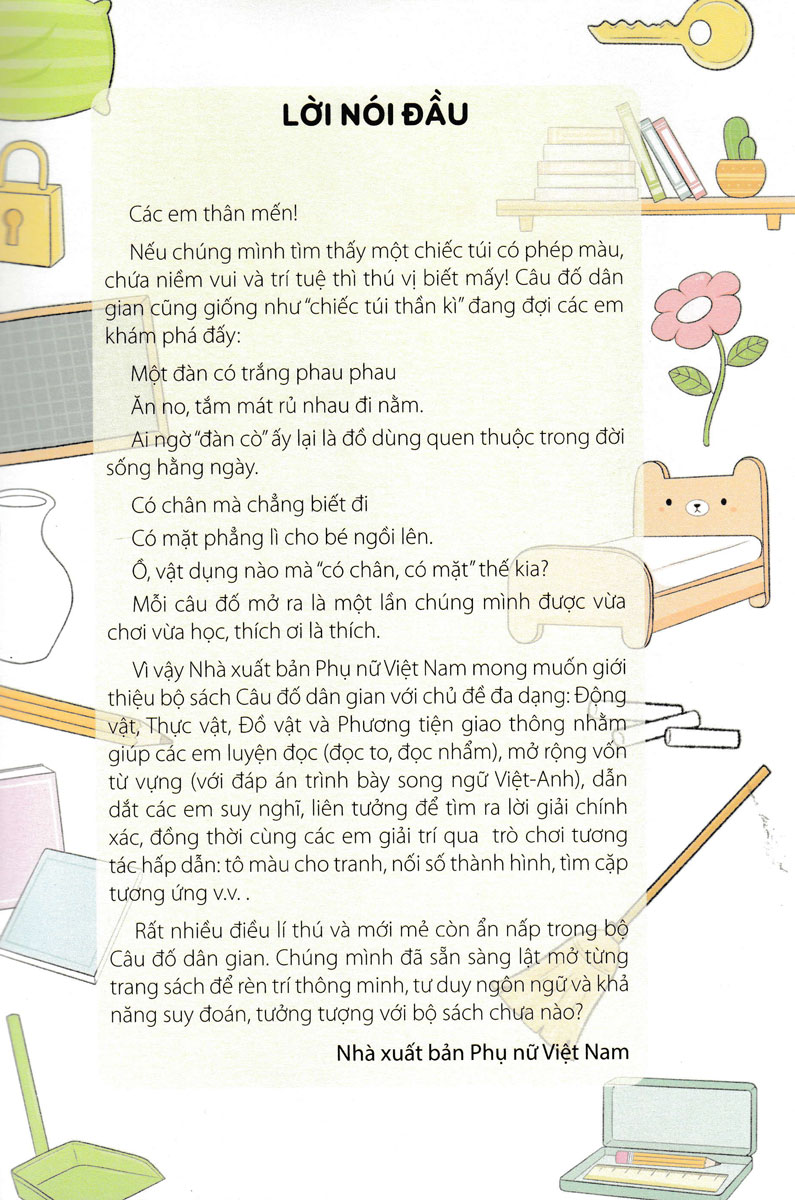 LỜI NÓI ĐẦU
Các em thân mến!
Nếu chúng mình tìm thấy một chiếc túi có phép màu,
chứa niềm vui và trí tuệ thì thú vị biết mấy! Câu đố dân
gian cũng giống như “chiếc túi thần kì” đang đợi các em
khám phá đấy:
Một đàn cò trắng phau phau
Ăn no, tắm mát rủ nhau đi nằm.
Ai ngờ “đàn cò” ấy lại là đồ dùng quen thuộc trong đời
sống hằng ngày.
Có chân mà chẳng biết đi
Có mặt phẳng lì cho bé ngồi lên.
Ồ, vật dụng nào mà “có chân, có mặt” thế kia?
Mỗi câu đố mở ra là một lần chúng mình được vừa
chơi vừa học, thích ơi là thích.
Vì vậy Nhà xuất bản Phụ nữ Việt Nam mong muốn giới
thiệu bộ sách Câu đố dân gian với chủ đề đa dạng: Động
vật, Thực vật, Đồ vật và Phương tiện giao thông nhằm
giúp các em luyện đọc (đọc to, đọc nhẩm), mở rộng vốn
từ vựng (với đáp án trình bày song ngữ Việt-Anh), dẫn
dắt các em suy nghĩ, liên tưởng để tìm ra lời giải chính
xác, đồng thời cùng các em giải trí qua trò chơi tương
tác hấp dẫn: tô màu cho tranh, nối số thành hình, tìm cặp
tương ứng v.v. .
Rất nhiều điều lí thú và mới mẻ còn ẩn nấp trong bộ
Câu đố dân gian. Chúng mình đã sẵn sàng lật mở từng
trang sách để rèn trí thông minh, tư duy ngôn ngữ và khả
năng suy đoán, tưởng tượng với bộ sách chưa nào?
Nhà xuất bản Phụ nữ Việt Nam